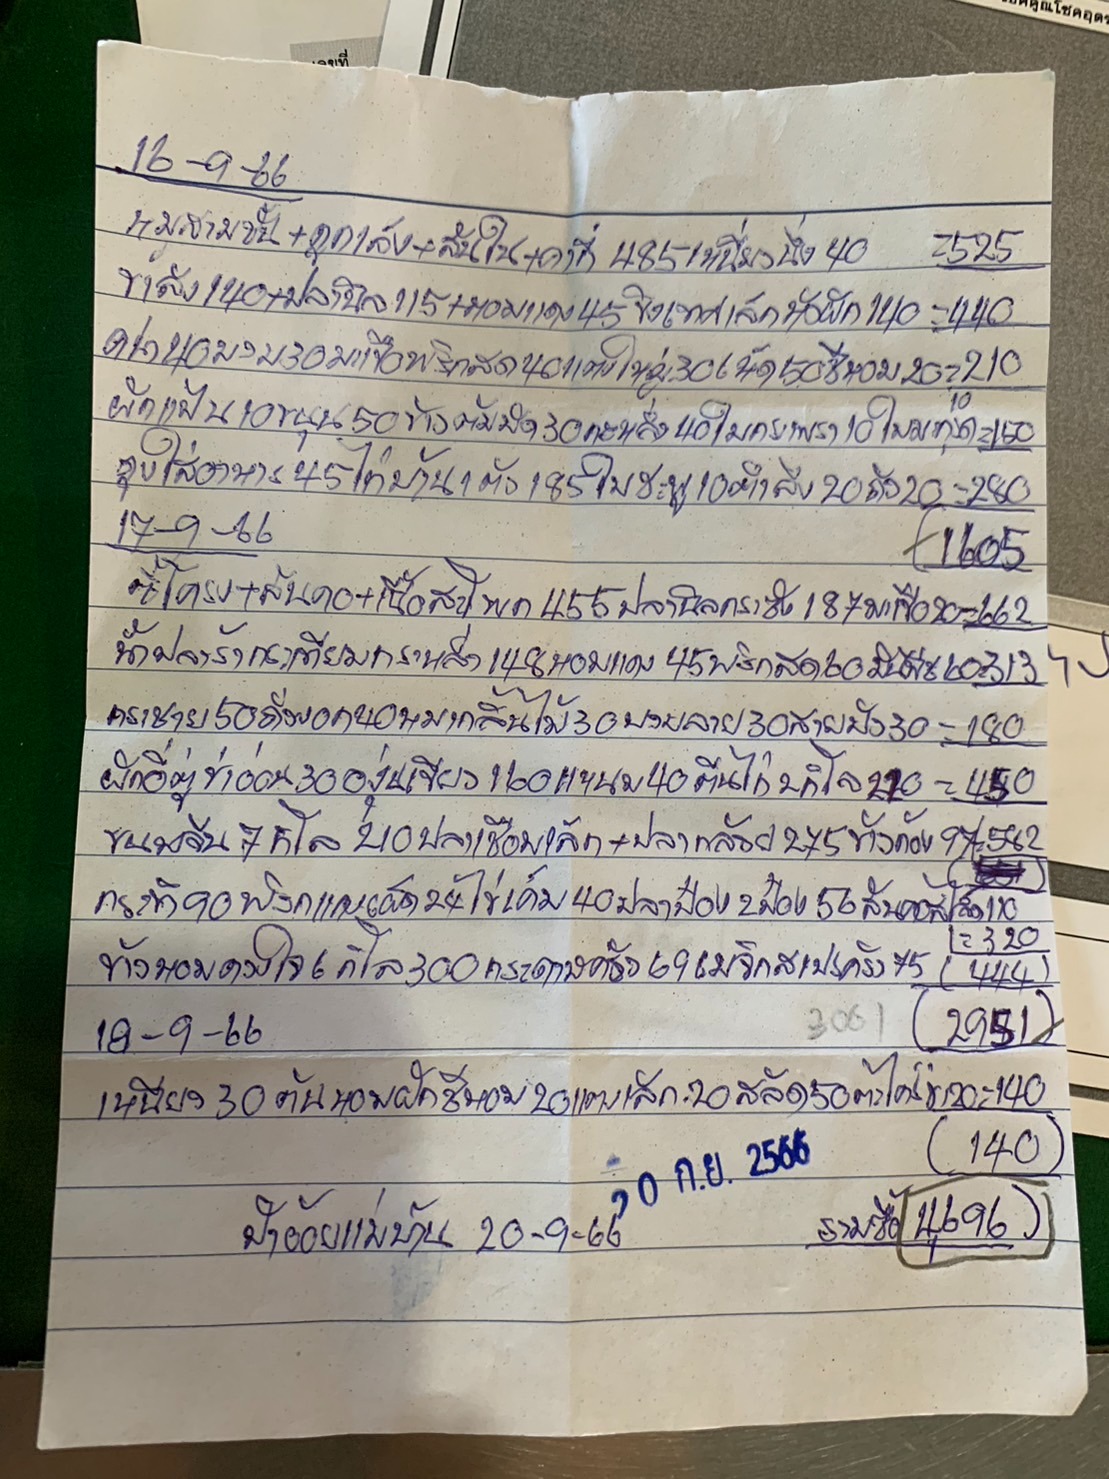 คูณโชคอุดร
เลขที่
16-9-66
หมูสามชั้น+ลูก+สันใน 485 เหนียวนึ่ง 40 =525
140+ปลานิล 115+หอมแดง 45 140=440
คะน้า 40 30 มะเขือพริกสด 40 แตงใหญ่ 30 เห็ด 50 ชีหอม 20=210
ผักแป้น 10 ขนุน 50 ข้าวต้มมัด 30 กะหล่ำ 40 ใบกะเพรา 10 ใบมะกรูด 10 =150
ถุงใส่อาหาร 45 ไก่บ้าน 1 ตัว 185 ใบชะพู 10 ตำลึง 20 ถั่ว 20=280
(1605
17-9-66
ซี่โครง+สันคอ+เนื้อสะโพก 455 ปลานิลกระชัง 187 มะเขือ 20=662
น้ำปลาร้ากระเทียม 148 หอมแดง 45 พริกสด 60 60=313
กระชาย 50 ถั่วงอก 40 30 30 สายบัว 30 =180
ผักอีตู่ข่าอ่อน 30 องุ่นเขียว 160 แหนม 40 ตีนไก่ 2 กิโล 220 =450
ขนมจีน 7 กิโล 210 ปลา +ปลา 275 ข้าวก้อง 97=562
กะทิ 90 พริกแกงเผ็ด 24 ไข่เค็ม 40 ปลาป๋อง 2 ป๋อง 56 110
=320
ข้าวหอมดวงใจ 6 กิโล 300 กระดาษครัว 69 เมจิกสเปรย์ครัว 75 (444)
18-9-66 3061 (2951)
เหนียว 30 ต้นหอมผักชีหอม 20 แตงเล็ก 20 สลัด 50 ตะไคร้ข่า 20=140
(140)
20 ก.ย. 2566
ป้าอ้อยแม่บ้าน 20-9-66 รวมซื้อ 4,696)